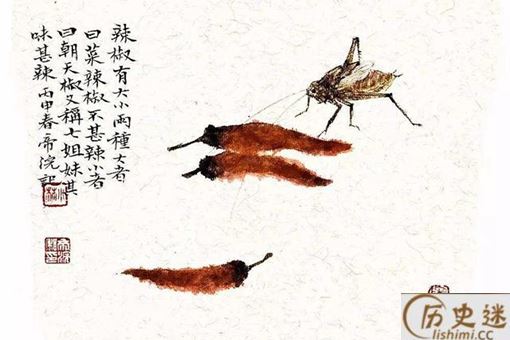 辣椒有大小兩種大者
曰菜辣椒不甚辣小者
曰朝天椒又稱七姐妹其
味甚辣丙申春帝浣記
历史迷
lishimi.cc